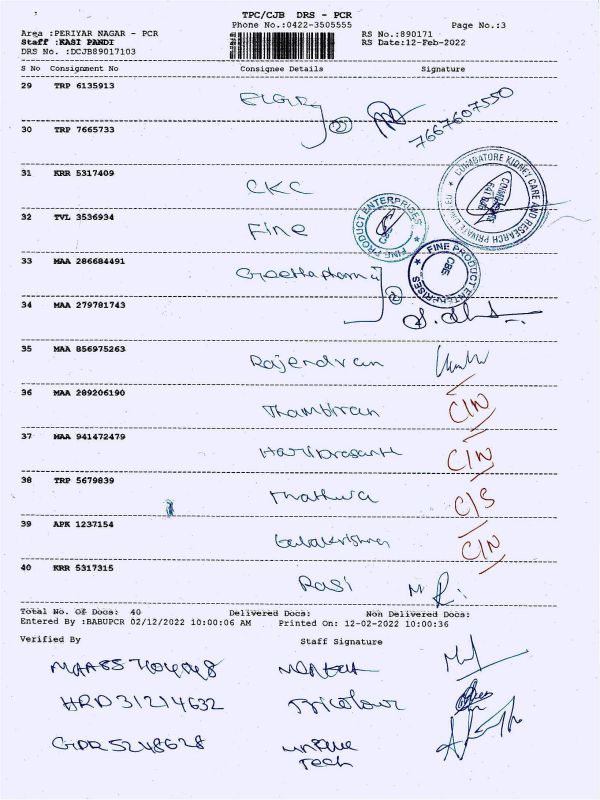 TPC/CJB DRS - PCR
Phone No.:0422-3505555 Page No.:3
Area :PERIYAR NAGAR - PCR RS No.:890171
Staff :KASI PANDI RS Date:12-Feb-2022
DRS No. :DCJB89017103
S No Consignment No Consignee Details Signature
29 TRP 6135913
ELGI 7667607550
30 TRP 7665733
31 KRR 5317409
CKC COIMBATORE KIDNEY CARE AND RESEARCH PRIVATE LIMITED
32 TVL 3536934
Fine FINE PRODUCT ENTERPRISES CBE
33 MAA 286684491
Geetha pharma FINE PRODUCT ENTERPRISES CBE
34 MAA 279781743
35 MAA 856975263
Rajendran
36 MAA 289206190
Thambiran C/N
37 MAA 941472479
Hariprasanth C/N
38 TRP 5679839
Mathura C/S
39 APK 1237154
Balakrishnan C/N
40 KRR 5317315
Rasi
Total No. Of Docs: 40 Delivered Docs: Non Delivered Docs:
Entered By :BABUPCR 02/12/2022 10:00:06 AM Printed On: 12-02-2022 10:00:36
Verified By Staff Signature
HRD 31214632 Tricolour
GDR 5248628 unique
Tech